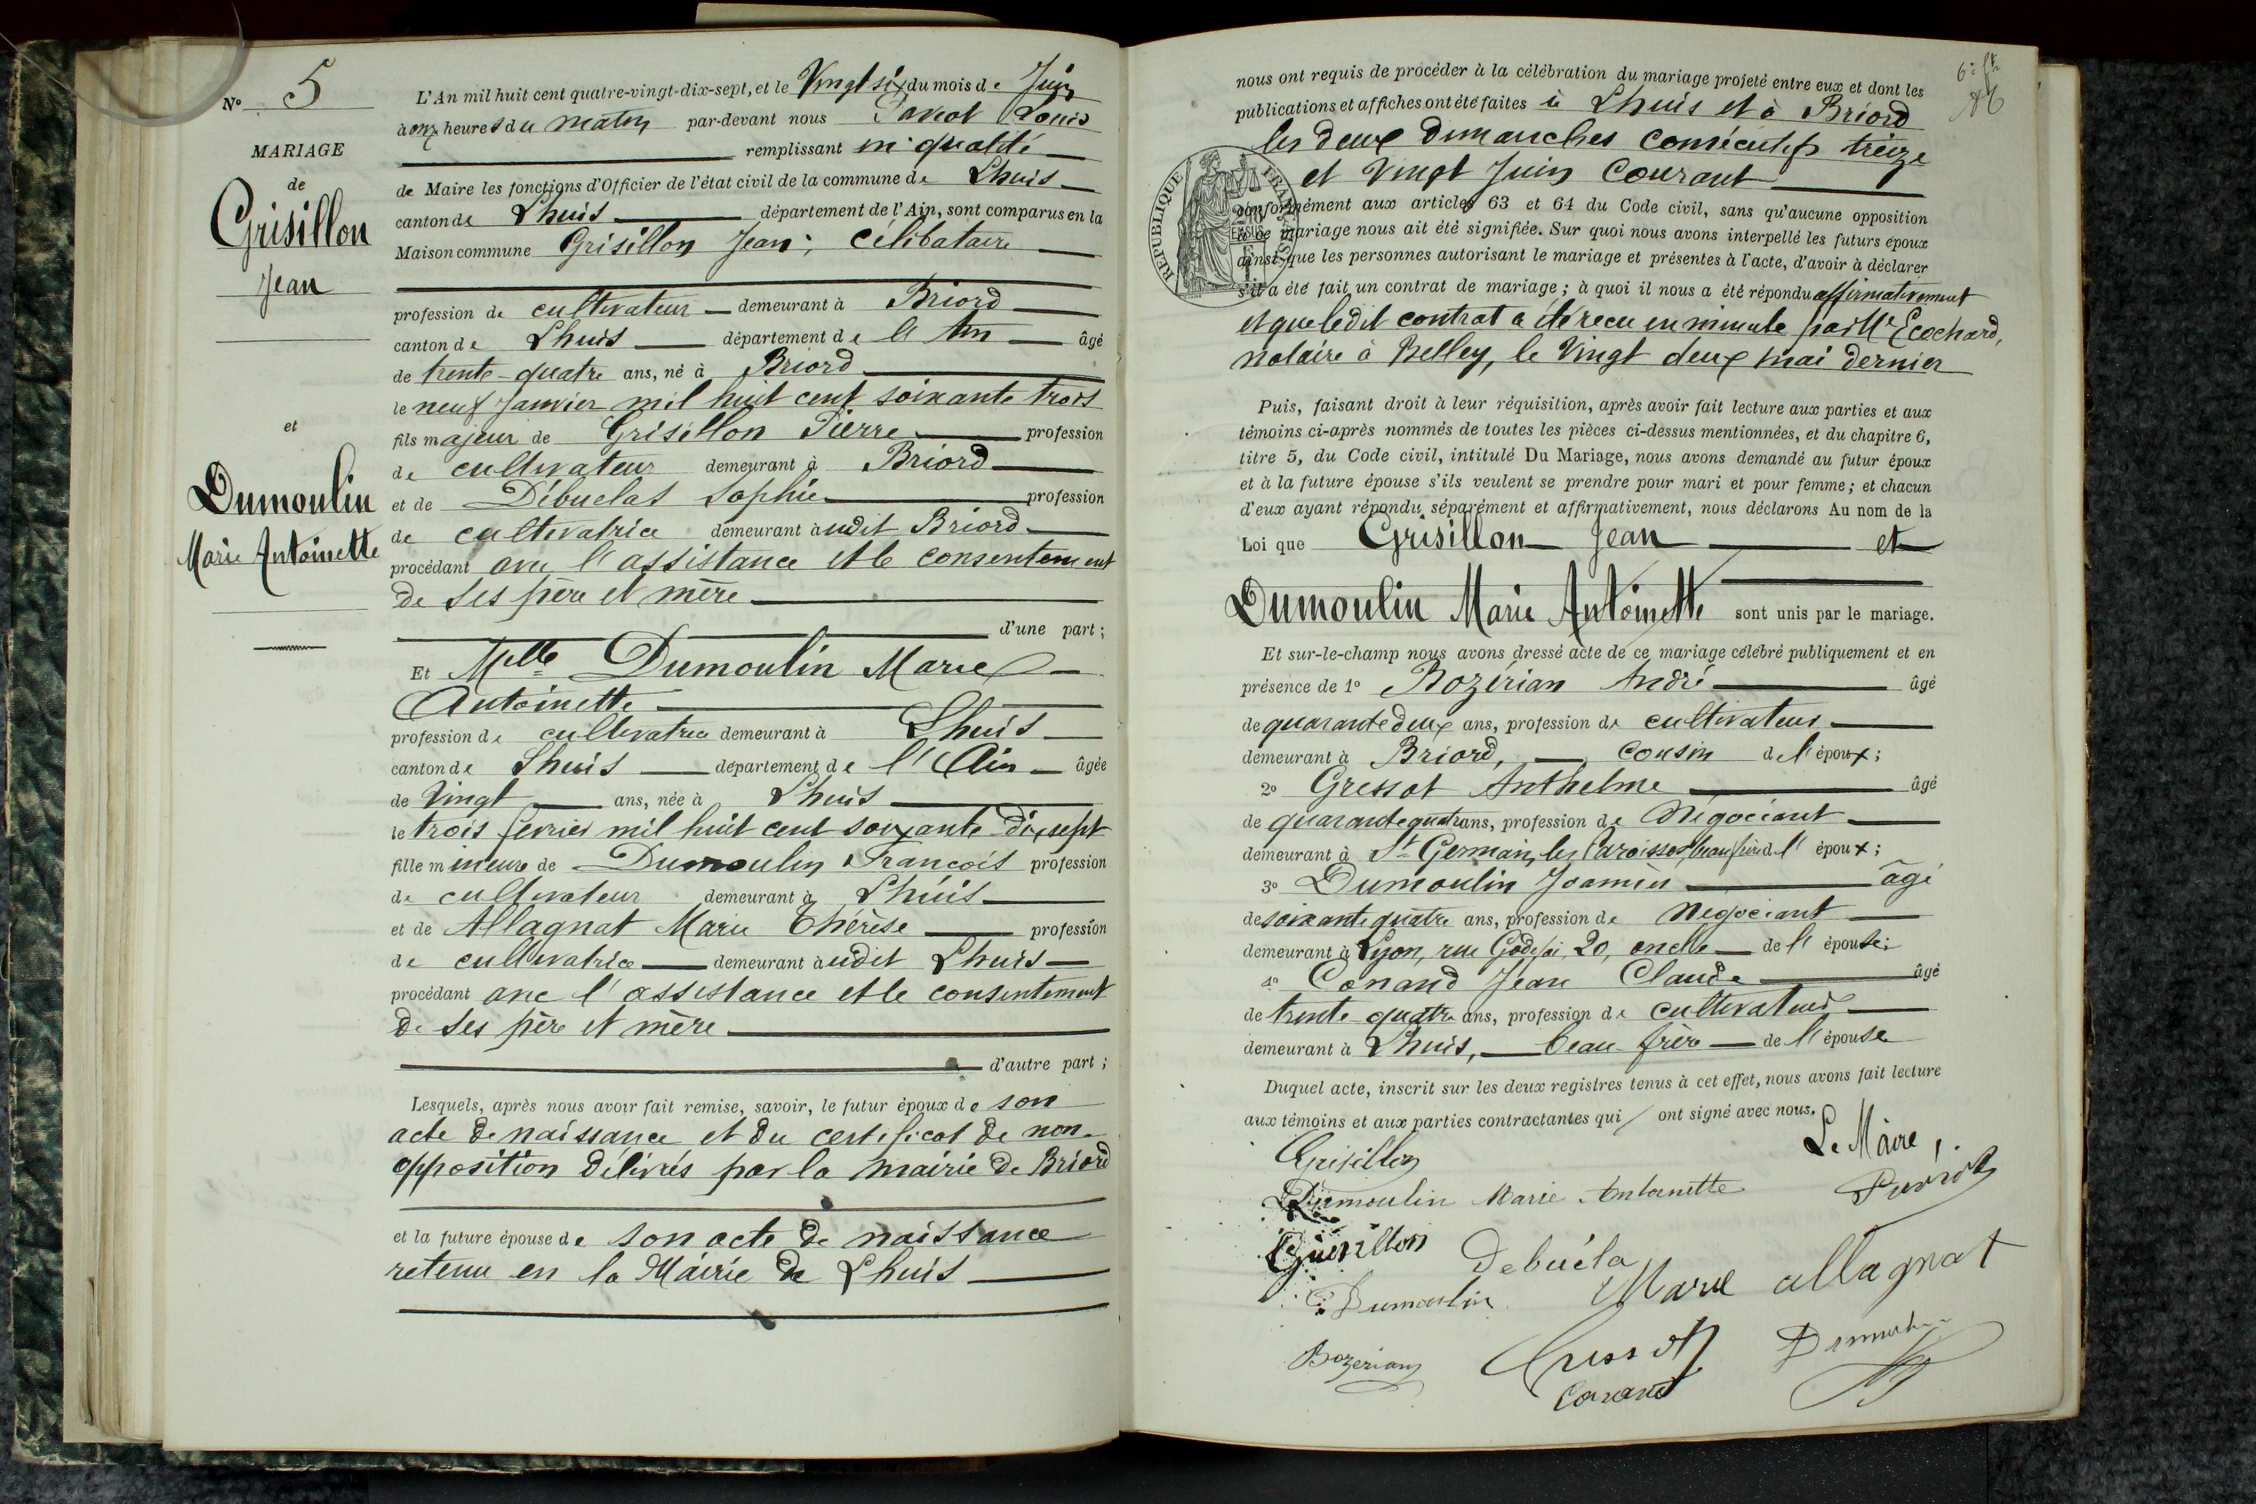 N° 5
MARIAGE
de
Grisillon
Jean
et
Dumoulin
Marie Antoinette
L'An mil huit cent quatre-vingt-dix-sept, et le Vingt six du mois de Juin
à onze heures du matin par-devant nous Louis
remplissant en qualité
de Maire les fonctions d'Officier de l'état civil de la commune de Lhuis
canton de Lhuis département de l'Ain, sont comparus en la
Maison commune Grisillon Jean, célibataire
profession de cultivateur demeurant à Briord
canton de Lhuis département de l'Ain âgé
de trente-quatre ans, né à Briord
le neuf Janvier mil huit cent soixante trois
fils majeur de Grisillon Pierre profession
de cultivateur demeurant à Briord
et de Débuclas Sophie profession
de cultivatrice demeurant audit Briord
procédant avec l'assistance et le consentement
de ses père et mère
d'une part ;
Et Melle Dumoulin Marie
Antoinette
profession de cultivatrice demeurant à Lhuis
canton de Lhuis département de l'Ain âgée
de Vingt ans, née à Lhuis
le trois février mil huit cent soixante-dix-sept
fille mineure de Dumoulin François profession
de cultivateur demeurant à Lhuis
et de Allagnat Marie Thérèse profession
de cultivatrice demeurant audit Lhuis
procédant avec l'assistance et le consentement
de ses père et mère
d'autre part ;
Lesquels, après nous avoir fait remise, savoir, le futur époux de son
acte de naissance et du certificat de non-
opposition délivrés par la mairie de Briord
et la future épouse de son acte de naissance
retenu en la Mairie de Lhuis
nous ont requis de procéder à la célébration du mariage projeté entre eux et dont les
publications et affiches ont été faites à Lhuis et à Briord
les deux dimanches consécutifs treize
et vingt Juin Courant
RÉPUBLIQUE FRANÇAISE
conformément aux articles 63 et 64 du Code civil, sans qu'aucune opposition
à ce mariage nous ait été signifiée. Sur quoi nous avons interpellé les futurs époux
ainsi que les personnes autorisant le mariage et présentes à l'acte, d'avoir à déclarer
s'il a été fait un contrat de mariage ; à quoi il nous a été répondu affirmativement
et que ledit contrat a été reçu en minute par Me Ecochard,
notaire à Belley, le vingt deux mai dernier
Puis, faisant droit à leur réquisition, après avoir fait lecture aux parties et aux
témoins ci-après nommés de toutes les pièces ci-dessus mentionnées, et du chapitre 6,
titre 5, du Code civil, intitulé Du Mariage, nous avons demandé au futur époux
et à la future épouse s'ils veulent se prendre pour mari et pour femme ; et chacun
d'eux ayant répondu séparément et affirmativement, nous déclarons Au nom de la
Loi que Grisillon Jean et
Dumoulin Marie Antoinette sont unis par le mariage.
Et sur-le-champ nous avons dressé acte de ce mariage célébré publiquement et en
présence de 1° Bozérian André âgé
de quarante deux ans, profession de cultivateur
demeurant à Briord, cousin de l'époux ;
2° Gressot Anthelme âgé
de quarante quatre ans, profession de Négociant
demeurant à St Germain les Paroisses beau frère de l'époux ;
3° Dumoulin Joannès âgé
de soixante quatre ans, profession de Négociant
demeurant à Lyon, rue Godefroi, 20, oncle de l'épouse ;
4° Conand Jean Claude âgé
de trente-quatre ans, profession de cultivateur
demeurant à Lhuis, beau frère de l'épouse
Duquel acte, inscrit sur les deux registres tenus à cet effet, nous avons fait lecture
aux témoins et aux parties contractantes qui ont signé avec nous.
Le Maire,
Grisillon
Dumoulin Marie Antoinette
Grisillon Debuéla
Dumoulin Marie allagnat
Bozerian Gressot Dumoulin
Conand